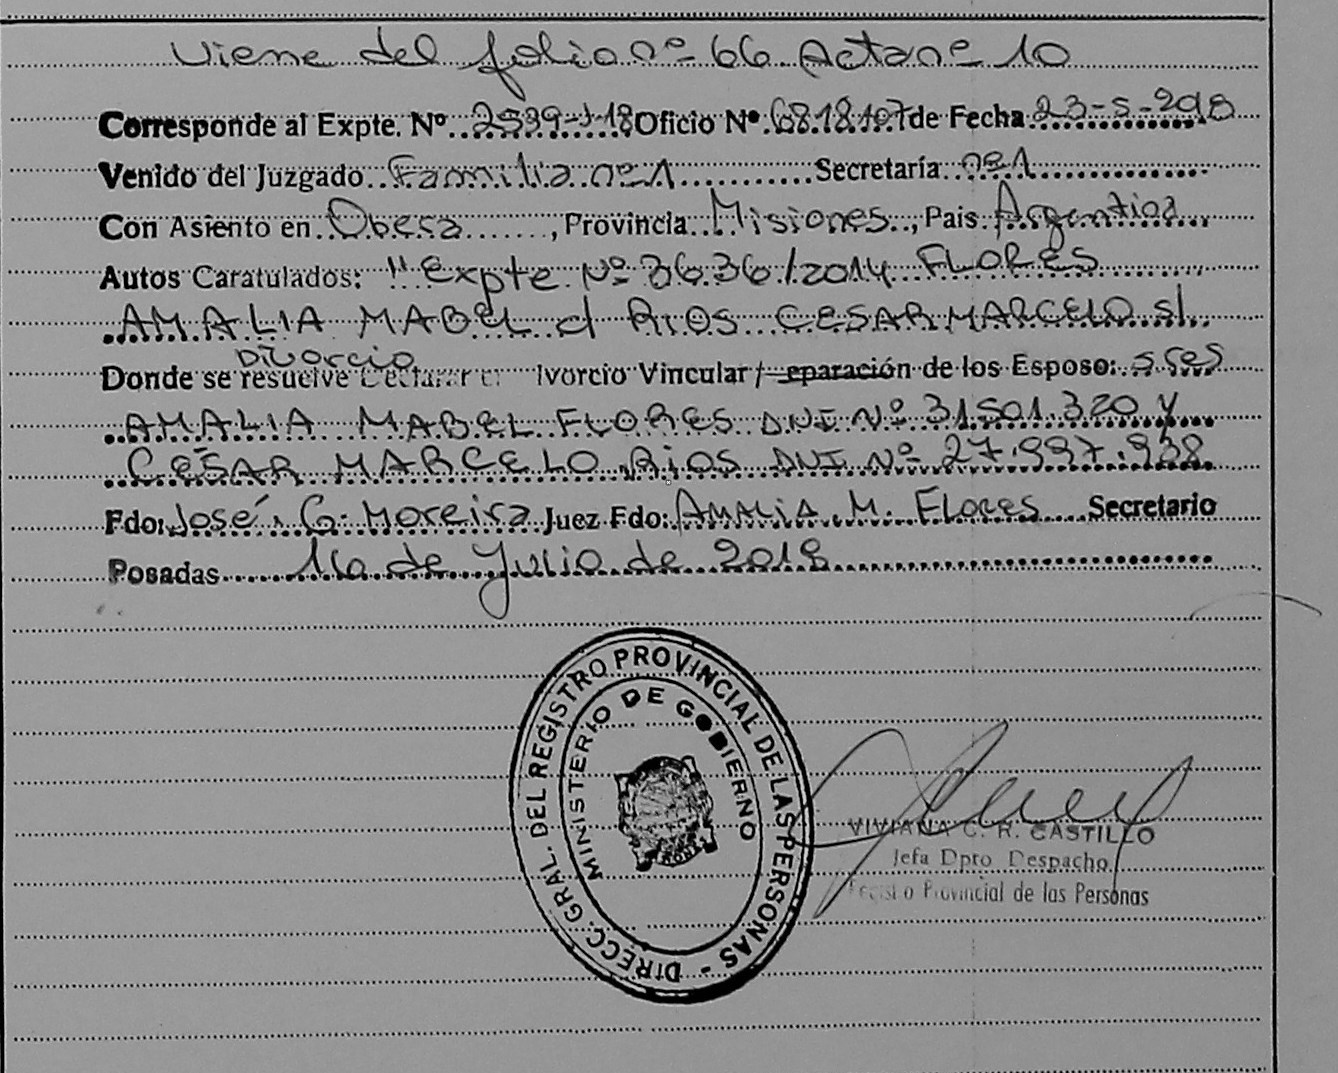 Viene del folio nº 66 Acta nº 10
Corresponde al Expte. Nº 2539-J-18 Oficio Nº 6818107 de Fecha 23-5-2018
Venido del Juzgado Familia nº 1 Secretaría nº 1
Con Asiento en Obera, Provincia Misiones, País Argentina
Autos Caratulados: "Expte Nº 3636/2014 FLORES
AMALIA MABEL c/ RIOS CESAR MARCELO s/
Divorcio
Donde se resuelve Declarar el Divorcio Vincular / Separación de los Esposo: sres
AMALIA MABEL FLORES DNI Nº 31.501.320 Y
CESAR MARCELO RIOS DNI Nº 27.997.938
Fdo: José G. Moreira Juez Fdo: AMALIA M. Flores Secretario
Posadas 16 de Julio de 2018
DIRECC. GRAL. DEL REGISTRO PROVINCIAL DE LAS PERSONAS -
MINISTERIO DE GOBIERNO
VIVIANA C. R. CASTILLO
Jefa Dpto Despacho
Registro Provincial de las Personas